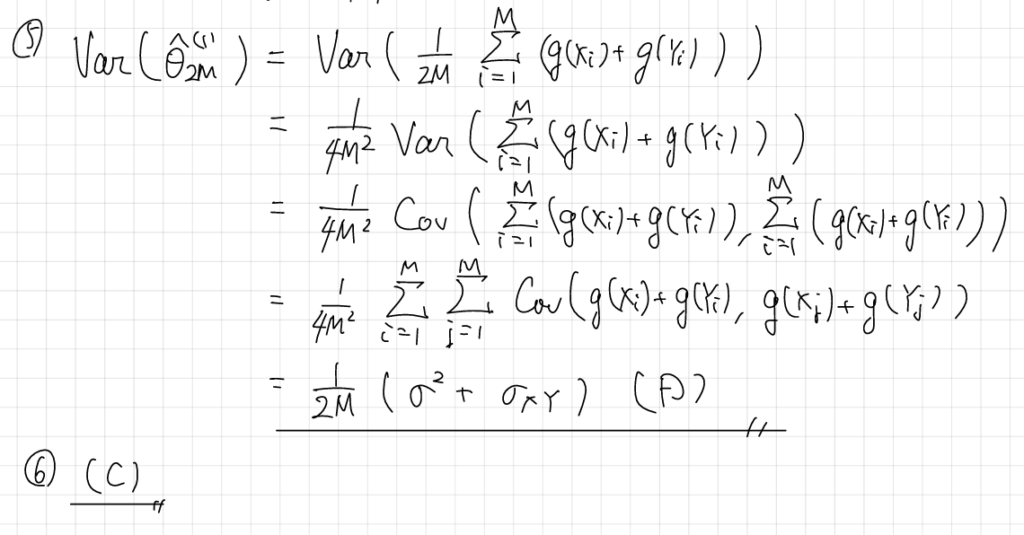 ⑤ Var(θ̂^{(1)}_{2M}) = Var( 1/2M Σ_{i=1}^{M} (g(Xi)+g(Yi)) )
= 1/4M² Var( Σ_{i=1}^{M} (g(Xi)+g(Yi)) )
= 1/4M² Cov( Σ_{i=1}^{M} (g(Xi)+g(Yi)), Σ_{i=1}^{M} (g(Xi)+g(Yi)))
= 1/4M² Σ_{i=1}^{M} Σ_{j=1}^{M} Cov(g(Xi)+g(Yi), g(Xj)+g(Yj))
= 1/2M (σ² + σ_{XY})
⑥ (C)